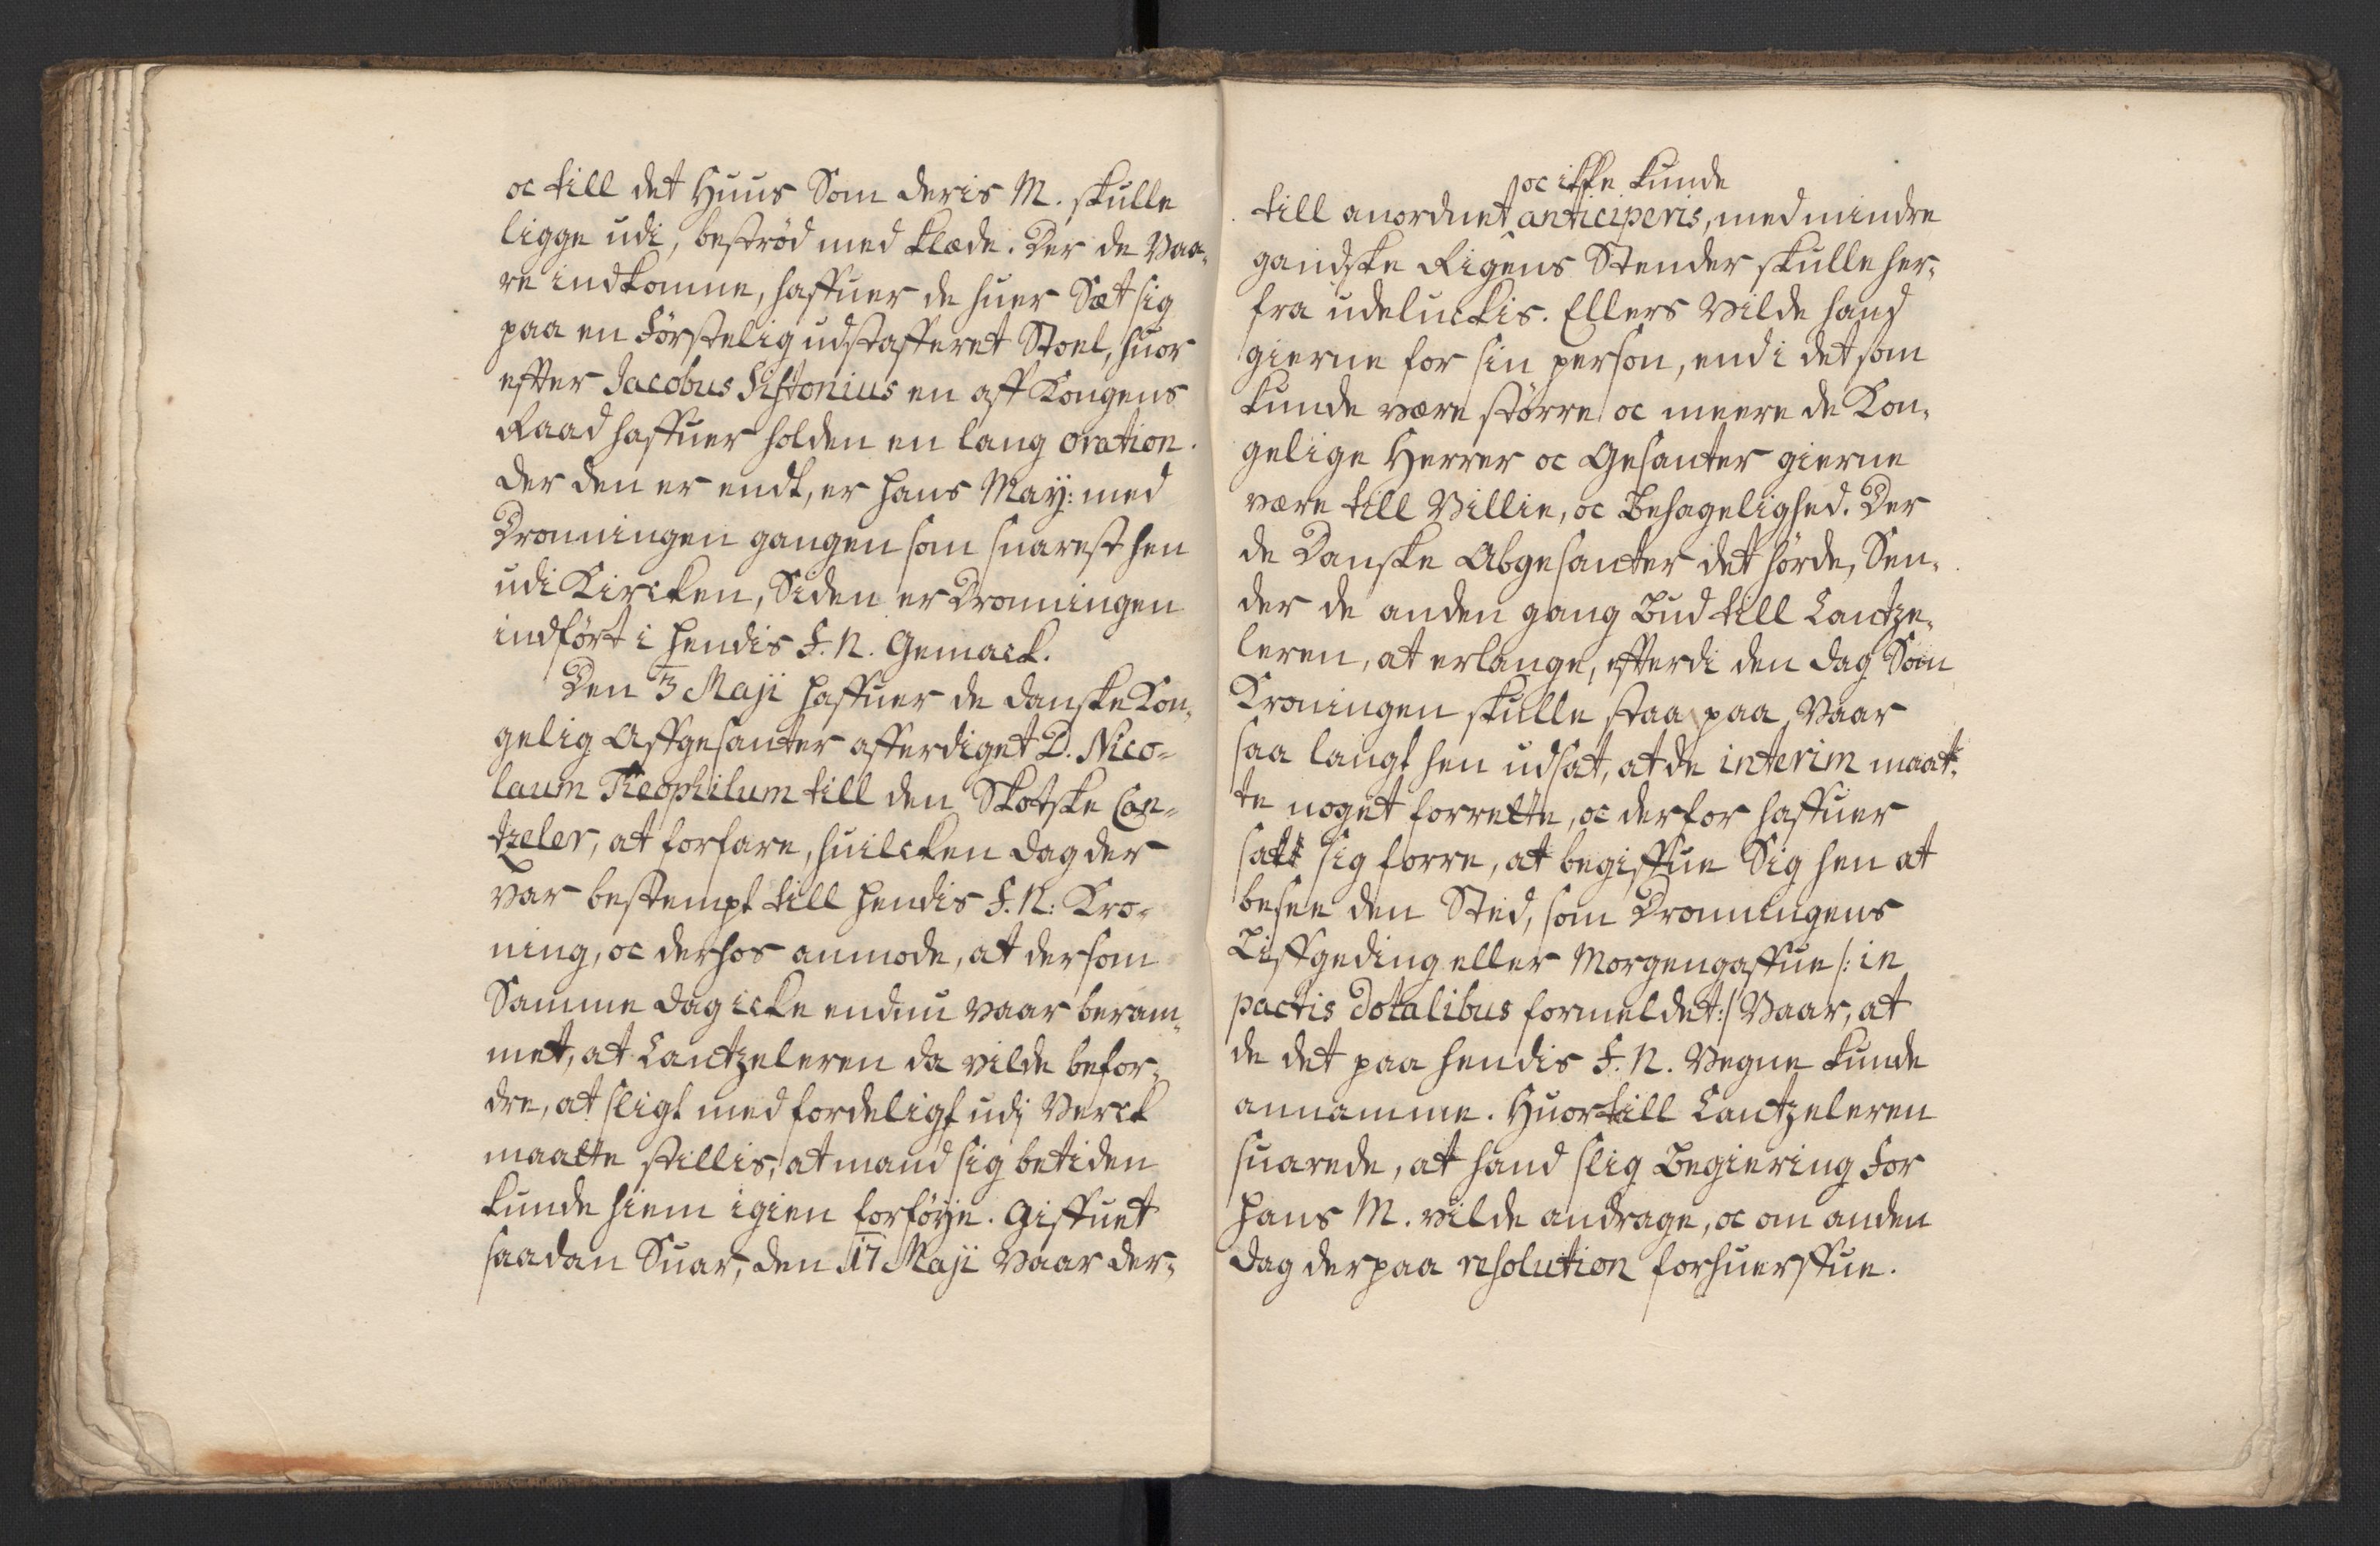 oc till det Huus Som deris M. skulle
ligge udi, beströd med klæde. Der de Vaa-
re indkomne, haffuer de huer Sæt sig
paa en Förstelig udstafferet Stoel, huor
effter Jacobus Sistonius en aff Kongens
Raad haffuer holden en lang oration.
der den er endt, er hans May: med
Dronningen gangen som snarest hen
udi Kircken, Siden er Dronningen
indfört i hendis F. N. Gemack.
Den 3 Maji haffuer de danske Kon-
gelig Affgesanter afferdiget D. Nico-
laum Theophilum till den Skotske Can-
tzeler, at forfare, huilcken dag der
var bestempt till hendis F. N: Kro-
ning, oc derhos anmode, at dersom
Samme dag icke endnu vaar beram-
met, at Cantzeleren da vilde befor-
dre, at sligt med fordeligst udi Verck
maatte stillis, at mand sig betiden
kunde hiem igien forföye. Giffuet
saadan Suar, den 17 Maji vaar der-
oc ikke kunde
till anordnet anticiperis, med mindre
gandske Rigens Stender skulle her-
fra udeluckis. Ellers vilde hand
gierne for sin person, end i det som
kunde være större oc meere de Kon-
gelige Herrer oc Gesanter gierne
være till Villie, oc Behagelighed. Der
de Danske Abgesanter det hörde, Sen-
der de anden gang Bud till Cantze-
leren, at erlange, efterdi den dag Som
Kroningen skulle staa paa, Vaar
saa langt hen udsat, at de interim maat-
te noget forrette, oc derfor haffuer
satt sig forre, at begiffue Sig hen at
besee den Sted, som Dronningens
Liffgeding eller Morgengaffue /: in
pactis dotalibus formeldet :/ Vaar, at
de det paa hendis F. N. Vegne kunde
annamme. Huortill Cantzeleren
suarede, at hand slig Begiering for
hans M. vilde andrage, oc om anden
dag derpaa resolution forhuerffue.